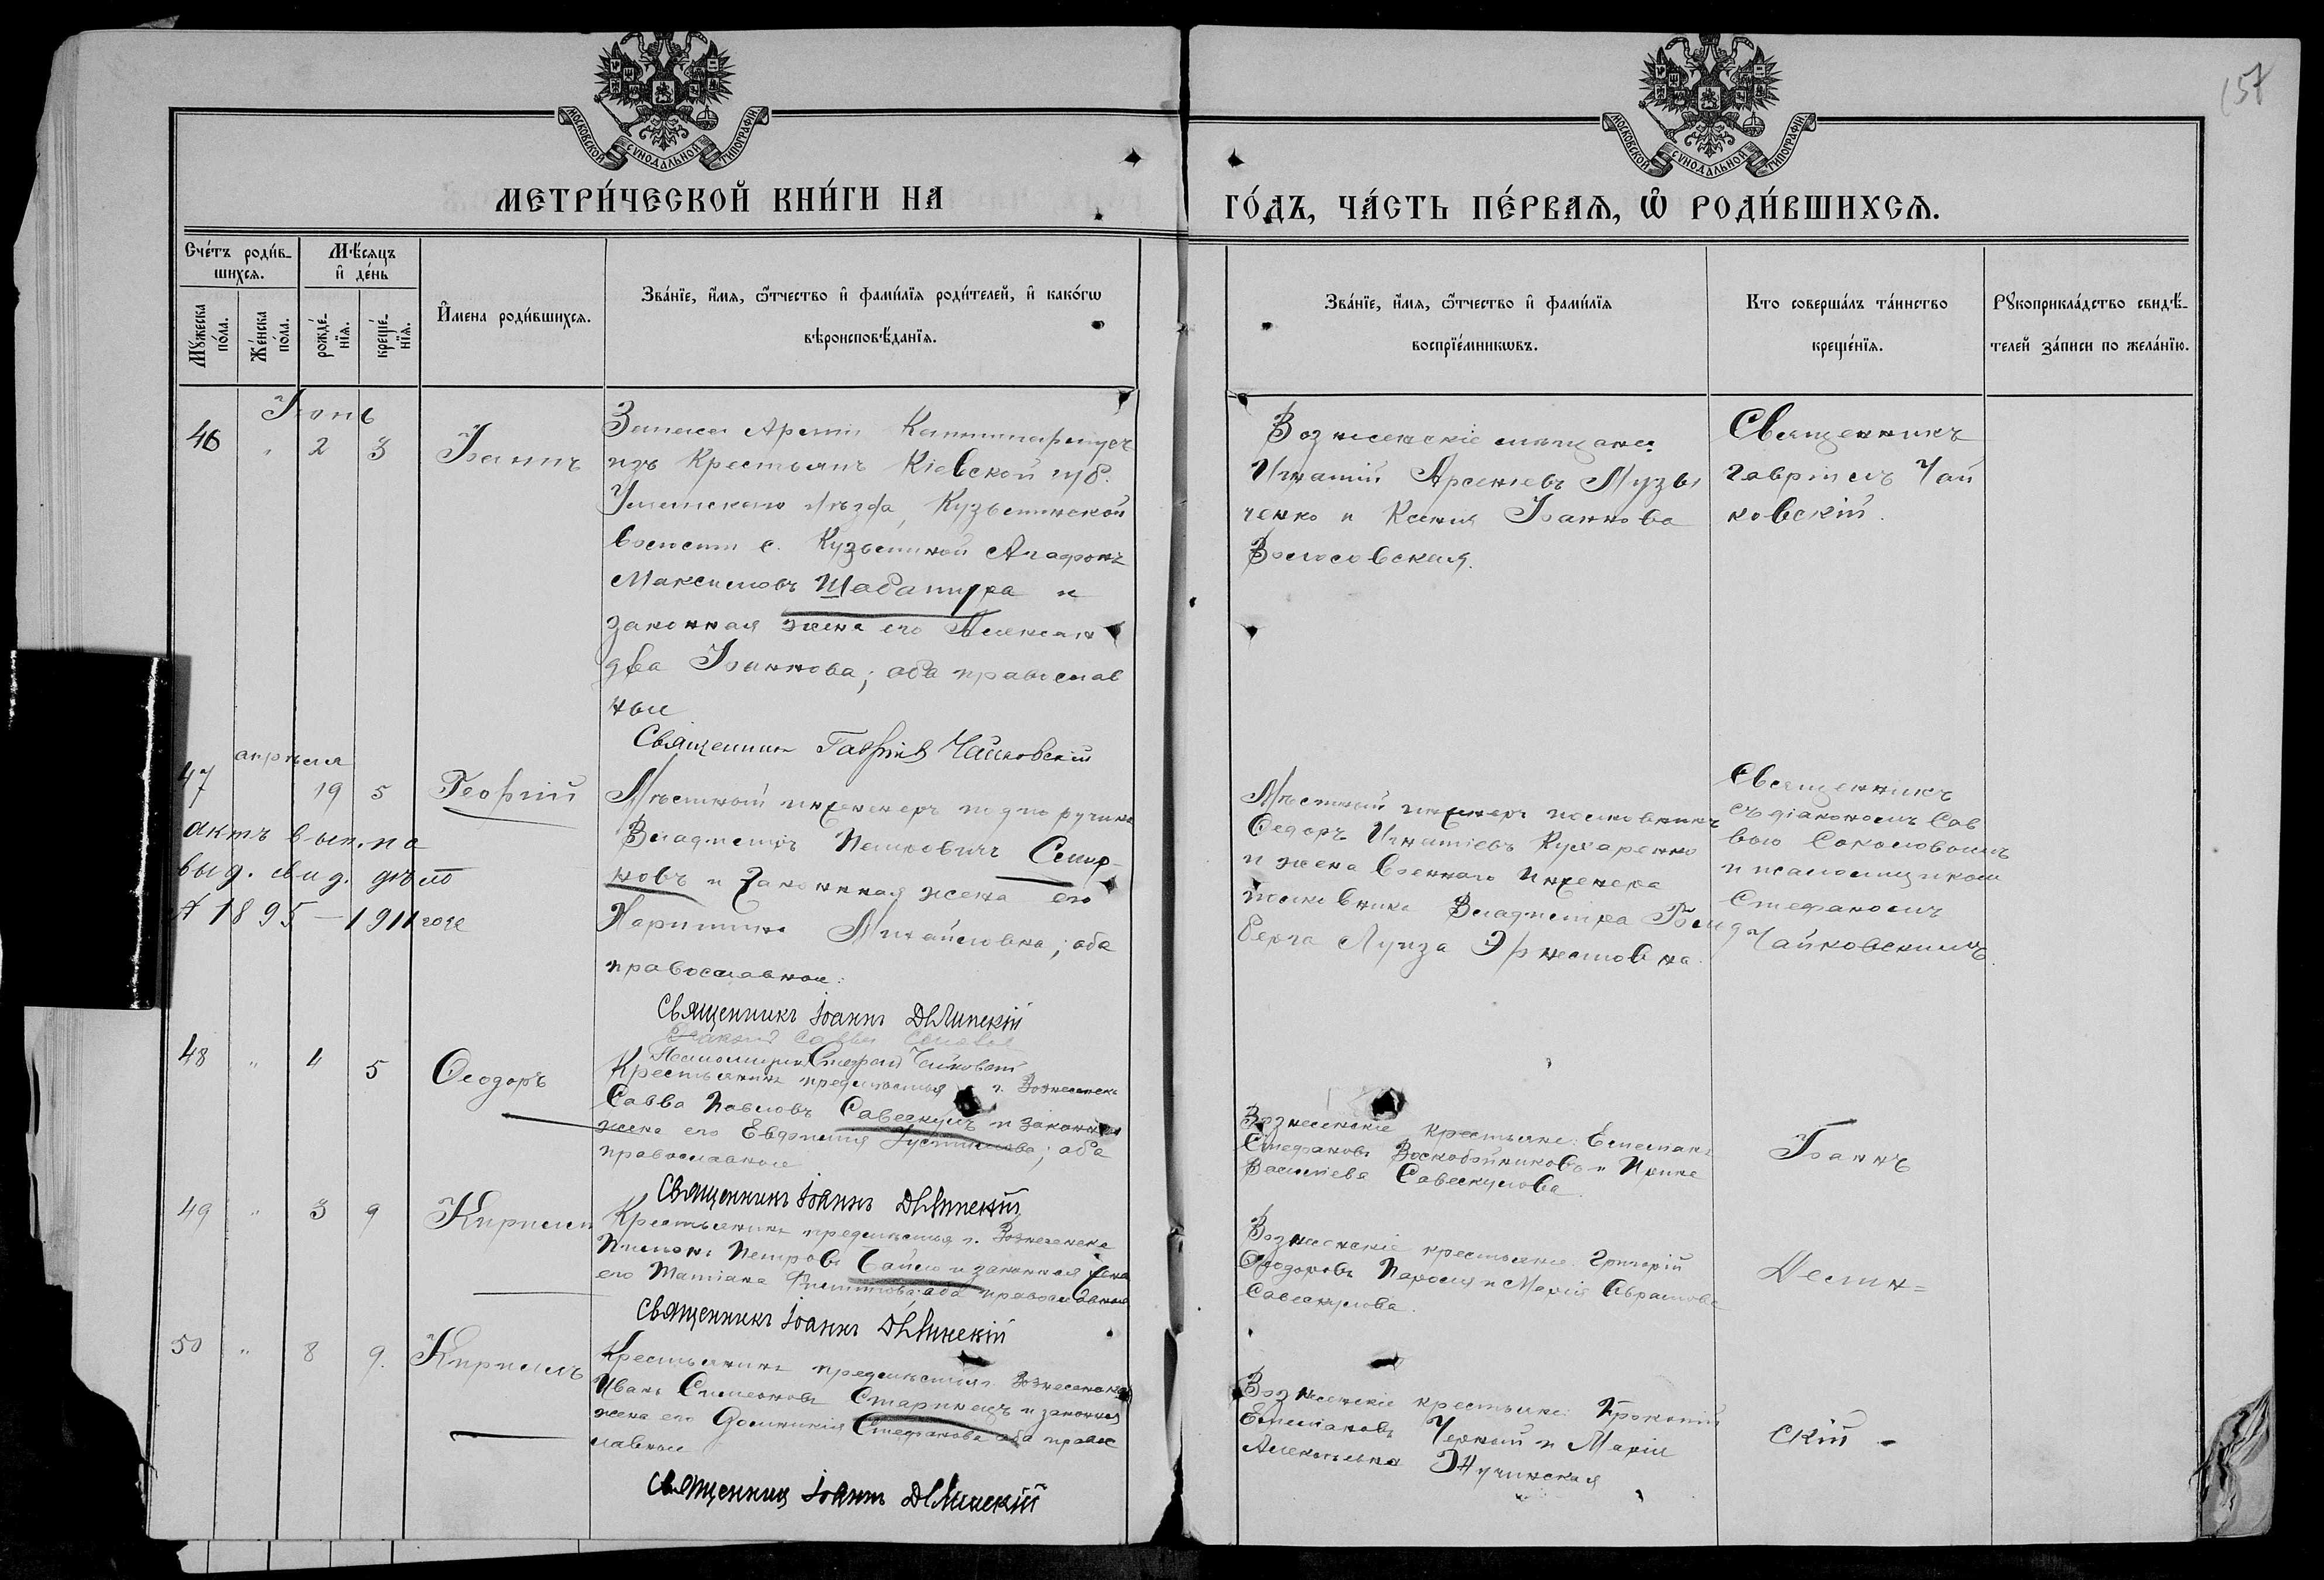 157
МОСКОВСКОЙ СУНОДАЛЬНОЙ ТИПОГРАФІИ
МОСКОВСКОЙ СУНОДАЛЬНОЙ ТИПОГРАФІИ
МЕТРИ́ЧЕСКОЙ КНИ́ГИ НА
ГО́ДЪ, ЧА́СТЬ ПЕ́РВАѦ, Ѡ҆ РОДИ́ВШИХСѦ.
Сче́тъ роди́в-
шихсѧ.
Мꙋ́жеска по́ла.
Же́нска по́ла.
Мѣ́сѧцъ
и҆ де́нь
рожде́-нїѧ.
креще́-нїѧ.
И҆мена роди́вшихсѧ.
Зва́нїе, и҆́мѧ, ѻ҆́тчество и҆ фами́лїѧ роди́телей, и҆ како́гѡ
вѣроисповѣ́данїѧ.
Зва́нїе, и҆́мѧ, ѻ҆́тчество и҆ фами́лїѧ
воспрїе́мникѡвъ.
Кто соверша́лъ та́инство
креще́нїѧ.
Рꙋкоприкла́дство свидѣ́-
телей за́писи по жела́нїю.
Іюнь
46 " 2 3 Іоаннъ
Запаса Арміи
изъ Крестьянъ Кіевской губ.
Уманскаго уѣзда, Кузьминской
волости с. Агафонъ
Максимовъ Шабатура и
законная жена его Алексан
дра Іоаннова; оба православ
ные
Священникъ Гавріилъ Чайковскій
Вознесенскіе мещане:
Игнатій Арсеніевъ Музы
ченко и Ксенія Іоаннова
Волосовская.
Священникъ
Гавріилъ Чай
ковскій.
апрѣля
47 19 5 Георгій
актъ вып. по
выд. свид. дѣло
1895 – 1911 годе
Мѣстный инженеръ подпоручикъ
Владиміръ Смир-
новъ и законная жена его
Михайловна; оба
православные.
Священникъ Іоаннъ Дѣлинскій
Псаломщикъ Стефанъ Чайковскій
Мѣстный инженеръ полковникъ
Федоръ Игнатіевъ Кухаренко
и жена военнаго инженера
полковника Владиміра
Луиза Эрнестовна.
Священникъ
съ діакономъ Сав
вою Соколовымъ
и псаломщикомъ
Стефаномъ
Чайковскимъ.
48 " 4 5 Ѳеодоръ
Крестьянинъ предмѣстья г. Вознесенска
Савва Павловъ Савескулъ и законная
жена его Евдокія Іустинова; оба
православные
Священникъ Іоаннъ Дѣлинскій
Вознесенскіе крестьяне: Емеліанъ
Стефановъ Воскобойниковъ и Ирина
Васильева Савескулова.
Іоаннъ
49 " 3 9 Кириллъ
Крестьянинъ предмѣстья г. Вознесенска
Пименъ Петровъ и законная жена
его Татіана Филиппова; оба православные
Священникъ Іоаннъ Дѣлинскій
Вознесенскіе крестьяне: Григорій
Ѳеодоровъ и Марія Аврамова
Савескулова.
50 " 8 9. Кириллъ
Крестьянинъ предмѣстья г. Вознесенска
Иванъ Симеоновъ Старинецъ и законная
жена его Домникія Стефанова оба правос
лавные
Священникъ Іоаннъ Дѣлинскій
Вознесенскіе крестьяне: Прокопій
Емеліановъ Черный и Марія
Жучинская
скій -